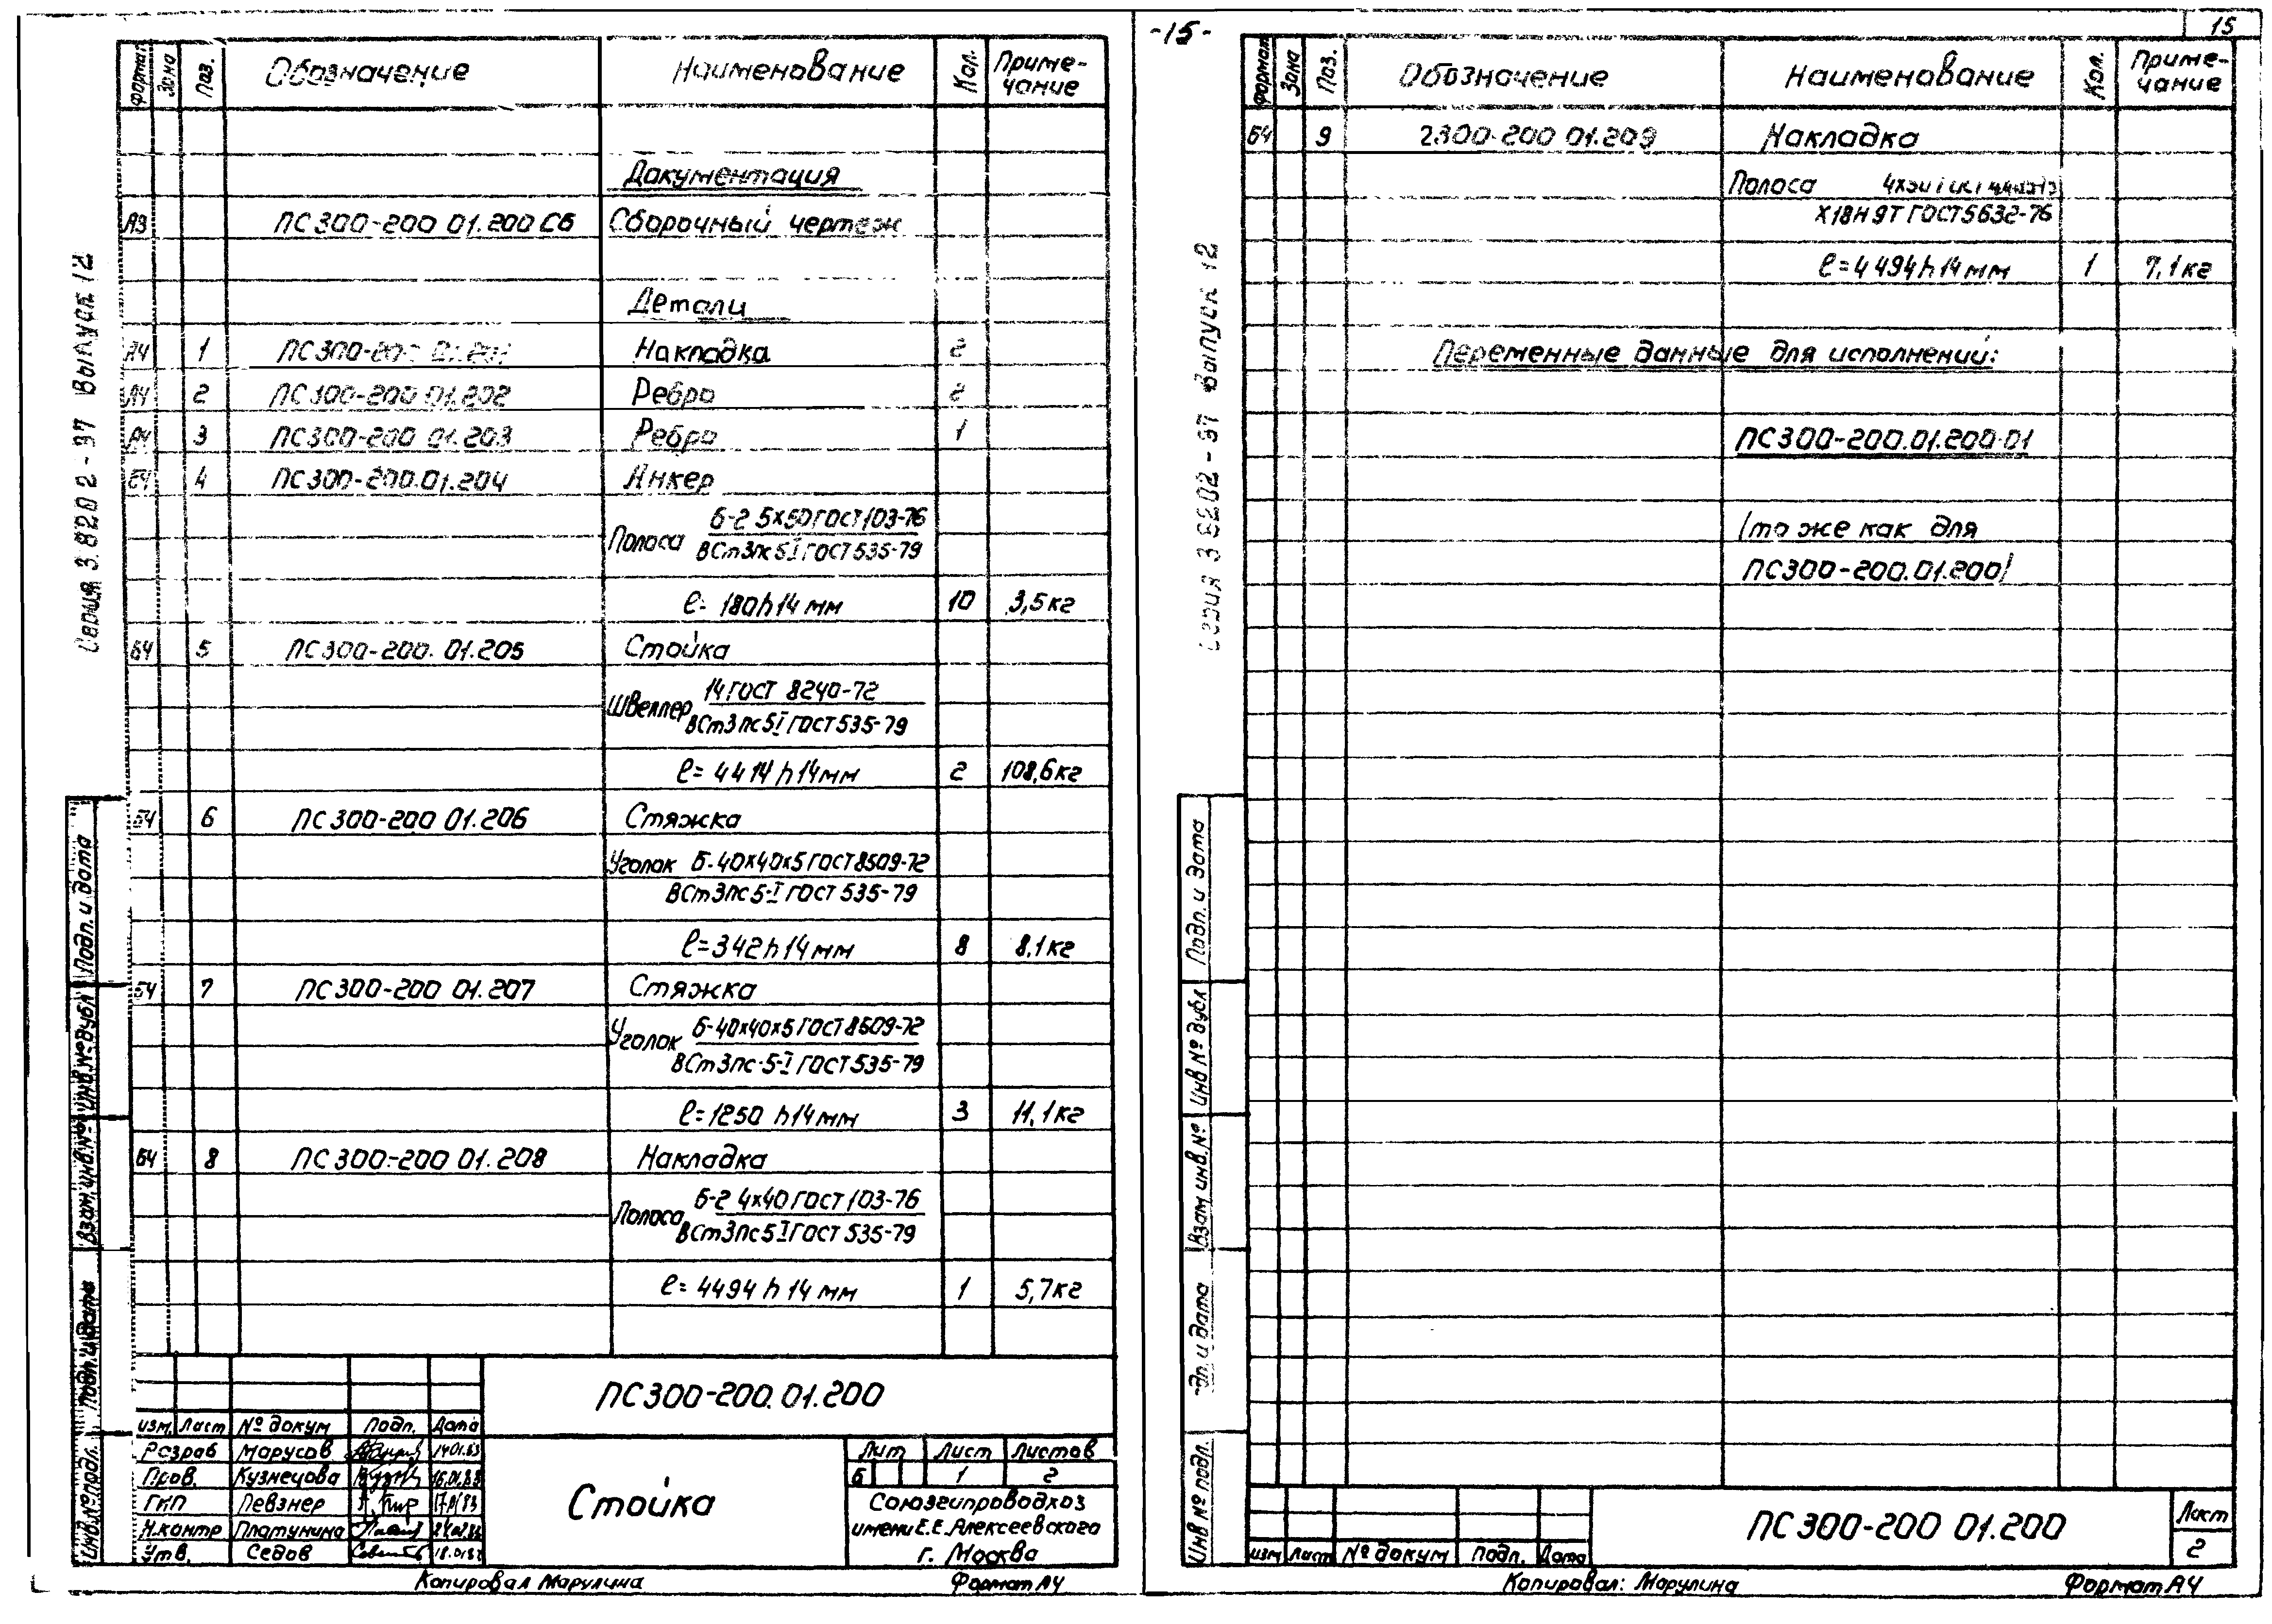 -15-
Формат Зона Поз. Обозначение Наименование Кол. Приме-
чание
Документация
А3 ПС300-200 01.200 СБ Сборочный чертеж
Детали
А4 1 ПС300-200 01.201 Накладка 2
А4 2 ПС300-200 01.202 Ребро 2
А4 3 ПС300-200 01.203 Ребро 1
БЧ 4 ПС300-200.01.204 Анкер
Б-2 5х50 ГОСТ 103-76
Полоса
ВСт3пс5I ГОСТ 535-79
ℓ= 180h14 мм 10 3,5кг
БЧ 5 ПС300-200. 01.205 Стойка
14 ГОСТ 8240-72
Швеллер
ВСт3пс5I ГОСТ 535-79
ℓ= 4414 h14мм 2 108,6кг
БЧ 6 ПС300-200 01.206 Стяжка
Уголок Б-40х40х5 ГОСТ 8509-72
ВСт3пс5-I ГОСТ 535-79
ℓ=342h14мм 8 8,1кг
БЧ 7 ПС300-200 01.207 Стяжка
Б-40х40х5 ГОСТ 8509-72
Уголок
ВСт3пс-5-I ГОСТ 535-79
ℓ=1250 h14мм 3 11,1кг
БЧ 8 ПС300-200 01.208 Накладка
Б-2 4х40 ГОСТ 103-76
Полоса
ВСт3пс5I ГОСТ 535-79
ℓ= 4494 h 14 мм 1 5,7кг
Серия 3.820 2-37 Выпуск 12
Подп. и дата
Инв.№ дубл
Взам.инв.№
Подп. и дата
Инв.№ подл.
ПС300-200.01.200
изм. Лист № докум Подп. Дата
Разраб Марусов 14.01.83
Пров. Кузнецова
ГИП Певзнер
Н.контр Платунина
Утв. Седов
Стойка
Лит Лист Листов
Б 1 2
Союзгипроводхоз
имени Е.Е.Алексеевского
г. Москва
Копировал Марулина Формат А4
15
Формат Зона Поз. Обозначение Наименование Кол. Приме-
чание
БЧ 9 2300-200 01.209 Накладка
Полоса
Х18Н9Т ГОСТ 5632-76
ℓ=4494h14мм 1 7,1кг
Переменные данные для исполнений:
ПС300-200.01.200-01
/то же как для
ПС300-200.01.200/
Серия 3 8202-37 Выпуск 12
Подп. и дата
Инв № дубл
Взам инв.№
и дата
Инв № подл.
ПС300-200 01.200
Лист
2
изм Лист № докум Подп. Дата
Копировал: Марулина Формат А4